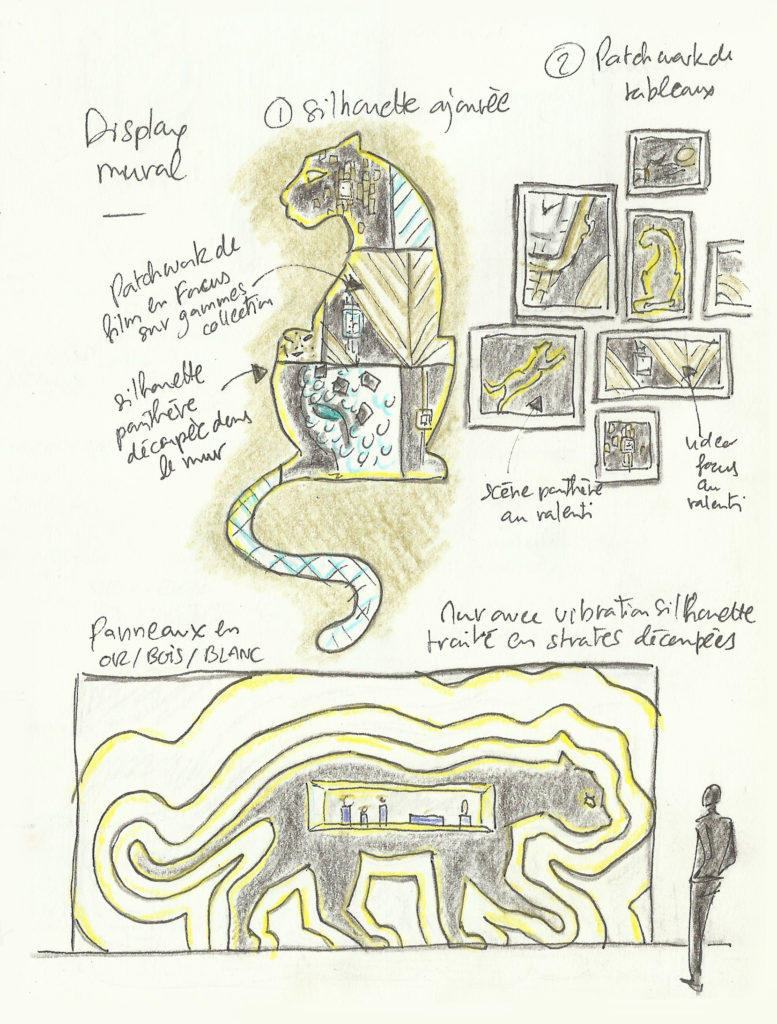 Display
mural
① Silhouette ajourée
② Patchwork de
tableaux
Patchwork de
film en Focus
sur gammes
collection
silhouette
panthère
découpée dans
le mur
scène panthère
au ralenti
video
focus
au
ralenti
Panneaux en
OR/BOIS/BLANC
Mur avec vibration silhouette
traité en strates découpées